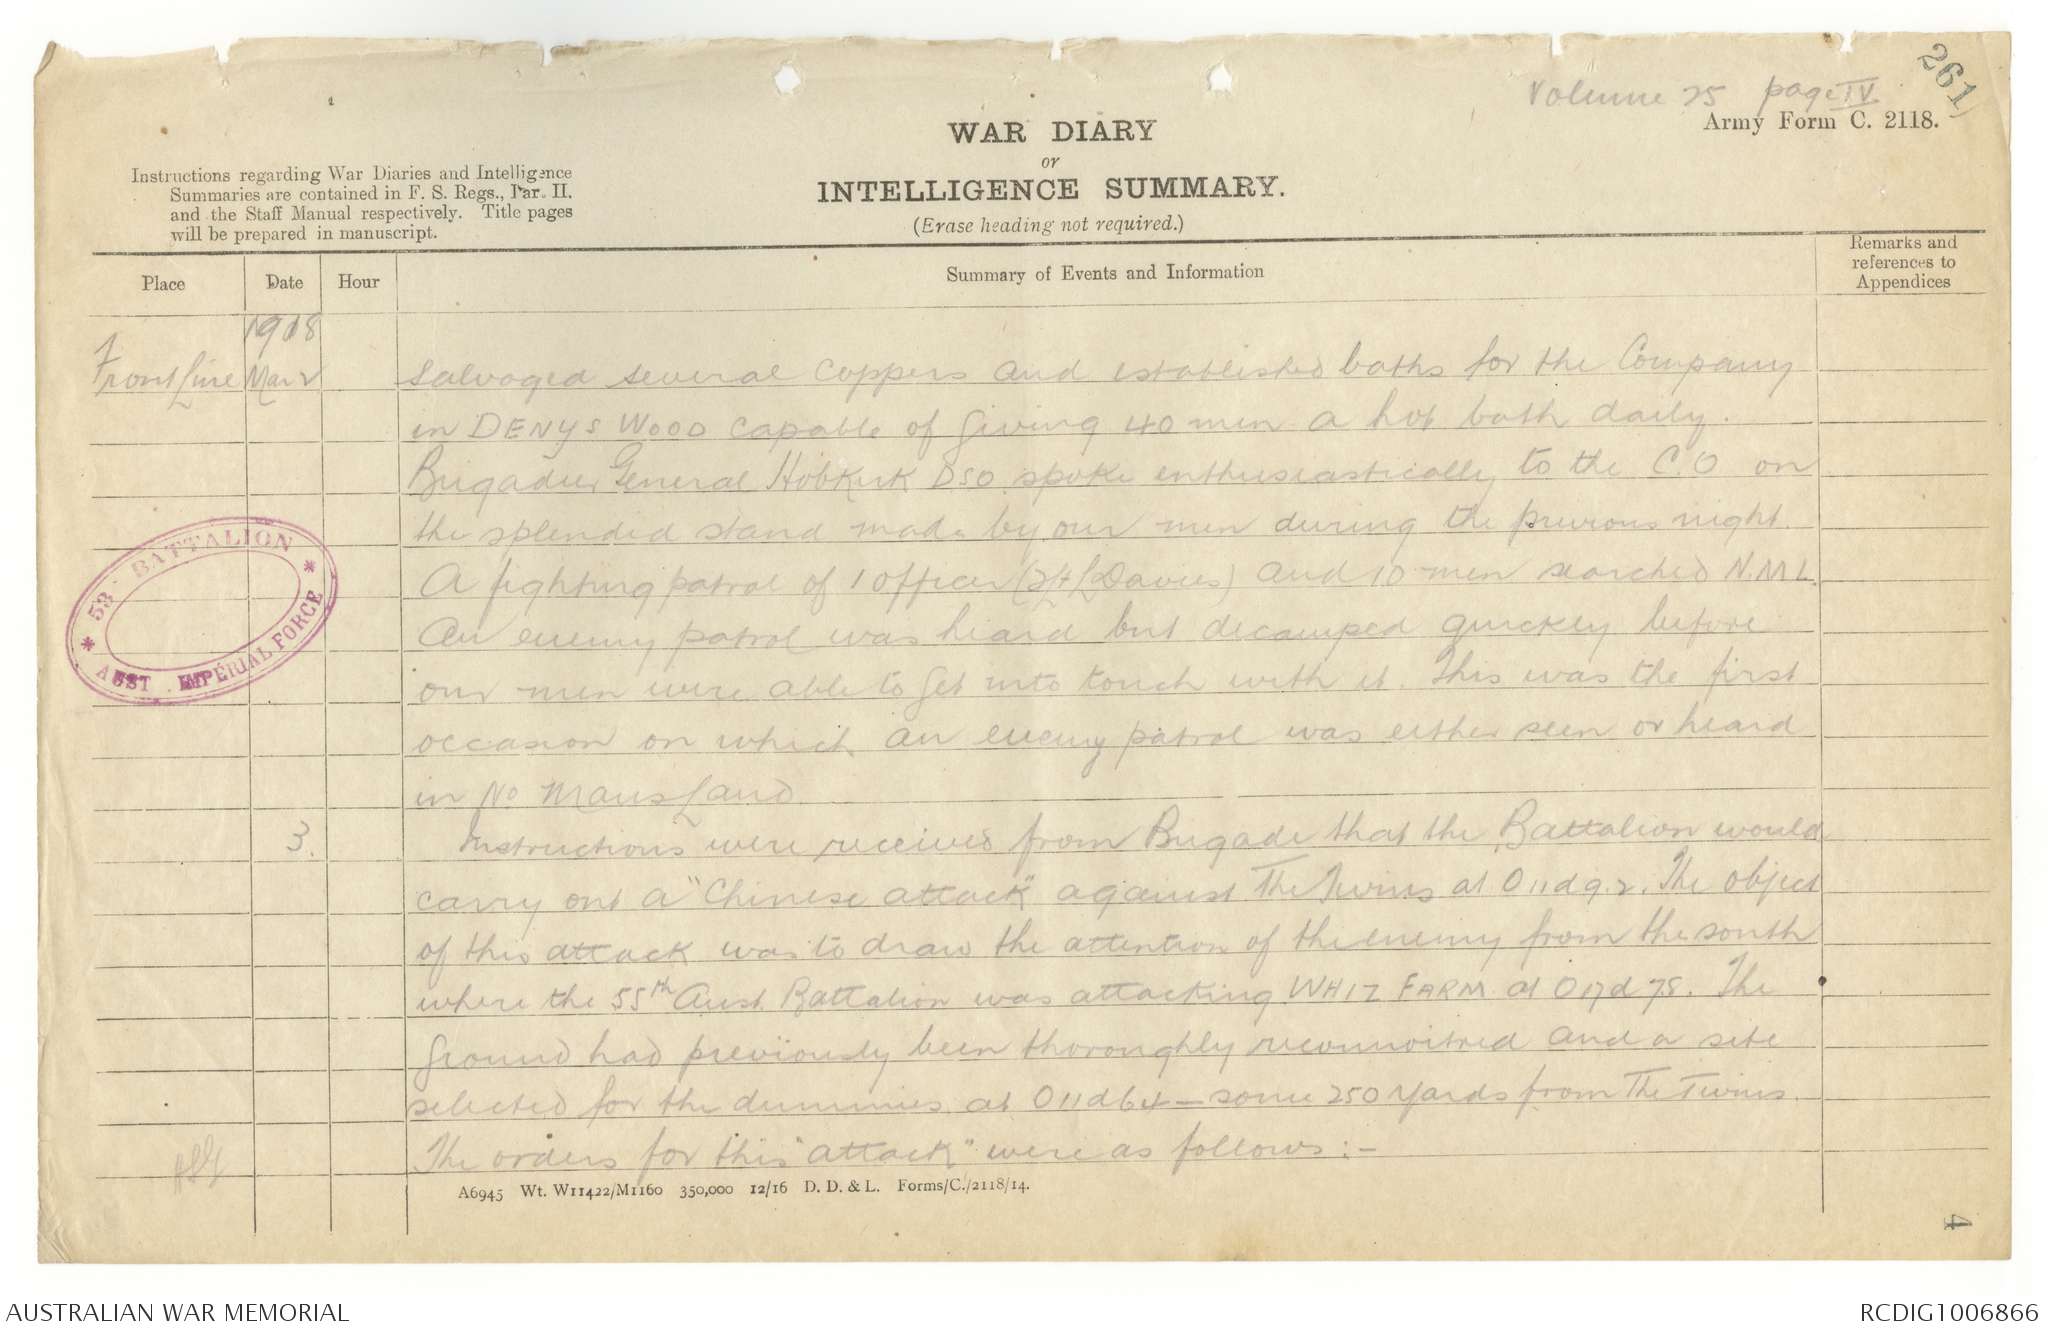 261
Volume 25 page IV
Army Form C. 2118.
WAR DIARY
or
INTELLIGENCE SUMMARY.
(Erase heading not required.)
Instructions regarding War Diaries and Intelligence
Summaries are contained in F. S. Regs., Par. II.
and the Staff Manual respectively. Title pages
will be prepared in manuscript.
Place
Date
Hour
Summary of Events and Information
Remarks and
references to
Appendices
1918
Front Line Mar 2 Salvaged several coppers and established baths for the Company
in DENYS WOOD capable of giving 40 men a hot bath daily.
Brigadier General Hobkirk DSO spoke enthusiastically to the C.O on
the splendid stand made by our men during the previous night.
A fighting patrol of 1 officer (Davies) and 10 men searched N.M.L.
An enemy patrol was heard but decamped quickly before
our men were able to get into touch with it. This was the first
occasion on which an enemy patrol was either seen or heard
in No Mans Land
3. Instructions were received from Brigade that the Battalion would
carry out a "Chinese attack" against The Twins at O11d9.2. The object
of this attack was to draw the attention of the enemy from the south
where the 55th Aust. Battalion was attacking WHIZ FARM at O17d78. The
ground had previously been thoroughly reconnoitred and a site
selected for the dummies at O11d64 — some 250 yards from The Twins.
The orders for this "attack" were as follows :-
53 BATTALION
* AUST IMPERIAL FORCE *
A6945 Wt. W11422/M1160 350,000 12/16 D. D. & L. Forms/C./2118/14.
4
AUSTRALIAN WAR MEMORIAL
RCDIG1006866